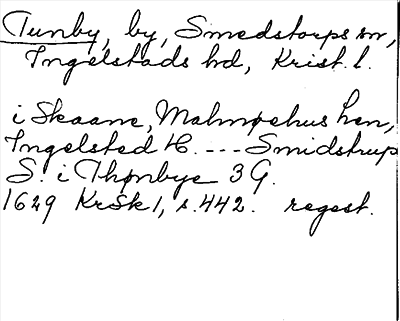 Tunby, by, Smedstorps sn,
Ingelstads hd, Krist. l.
i Skaane, Malmøehus Len,
Ingelsted H. --- Smidstrup
S. i Thønbye 3 G.
1629 KrSk 1, s. 442. regest.